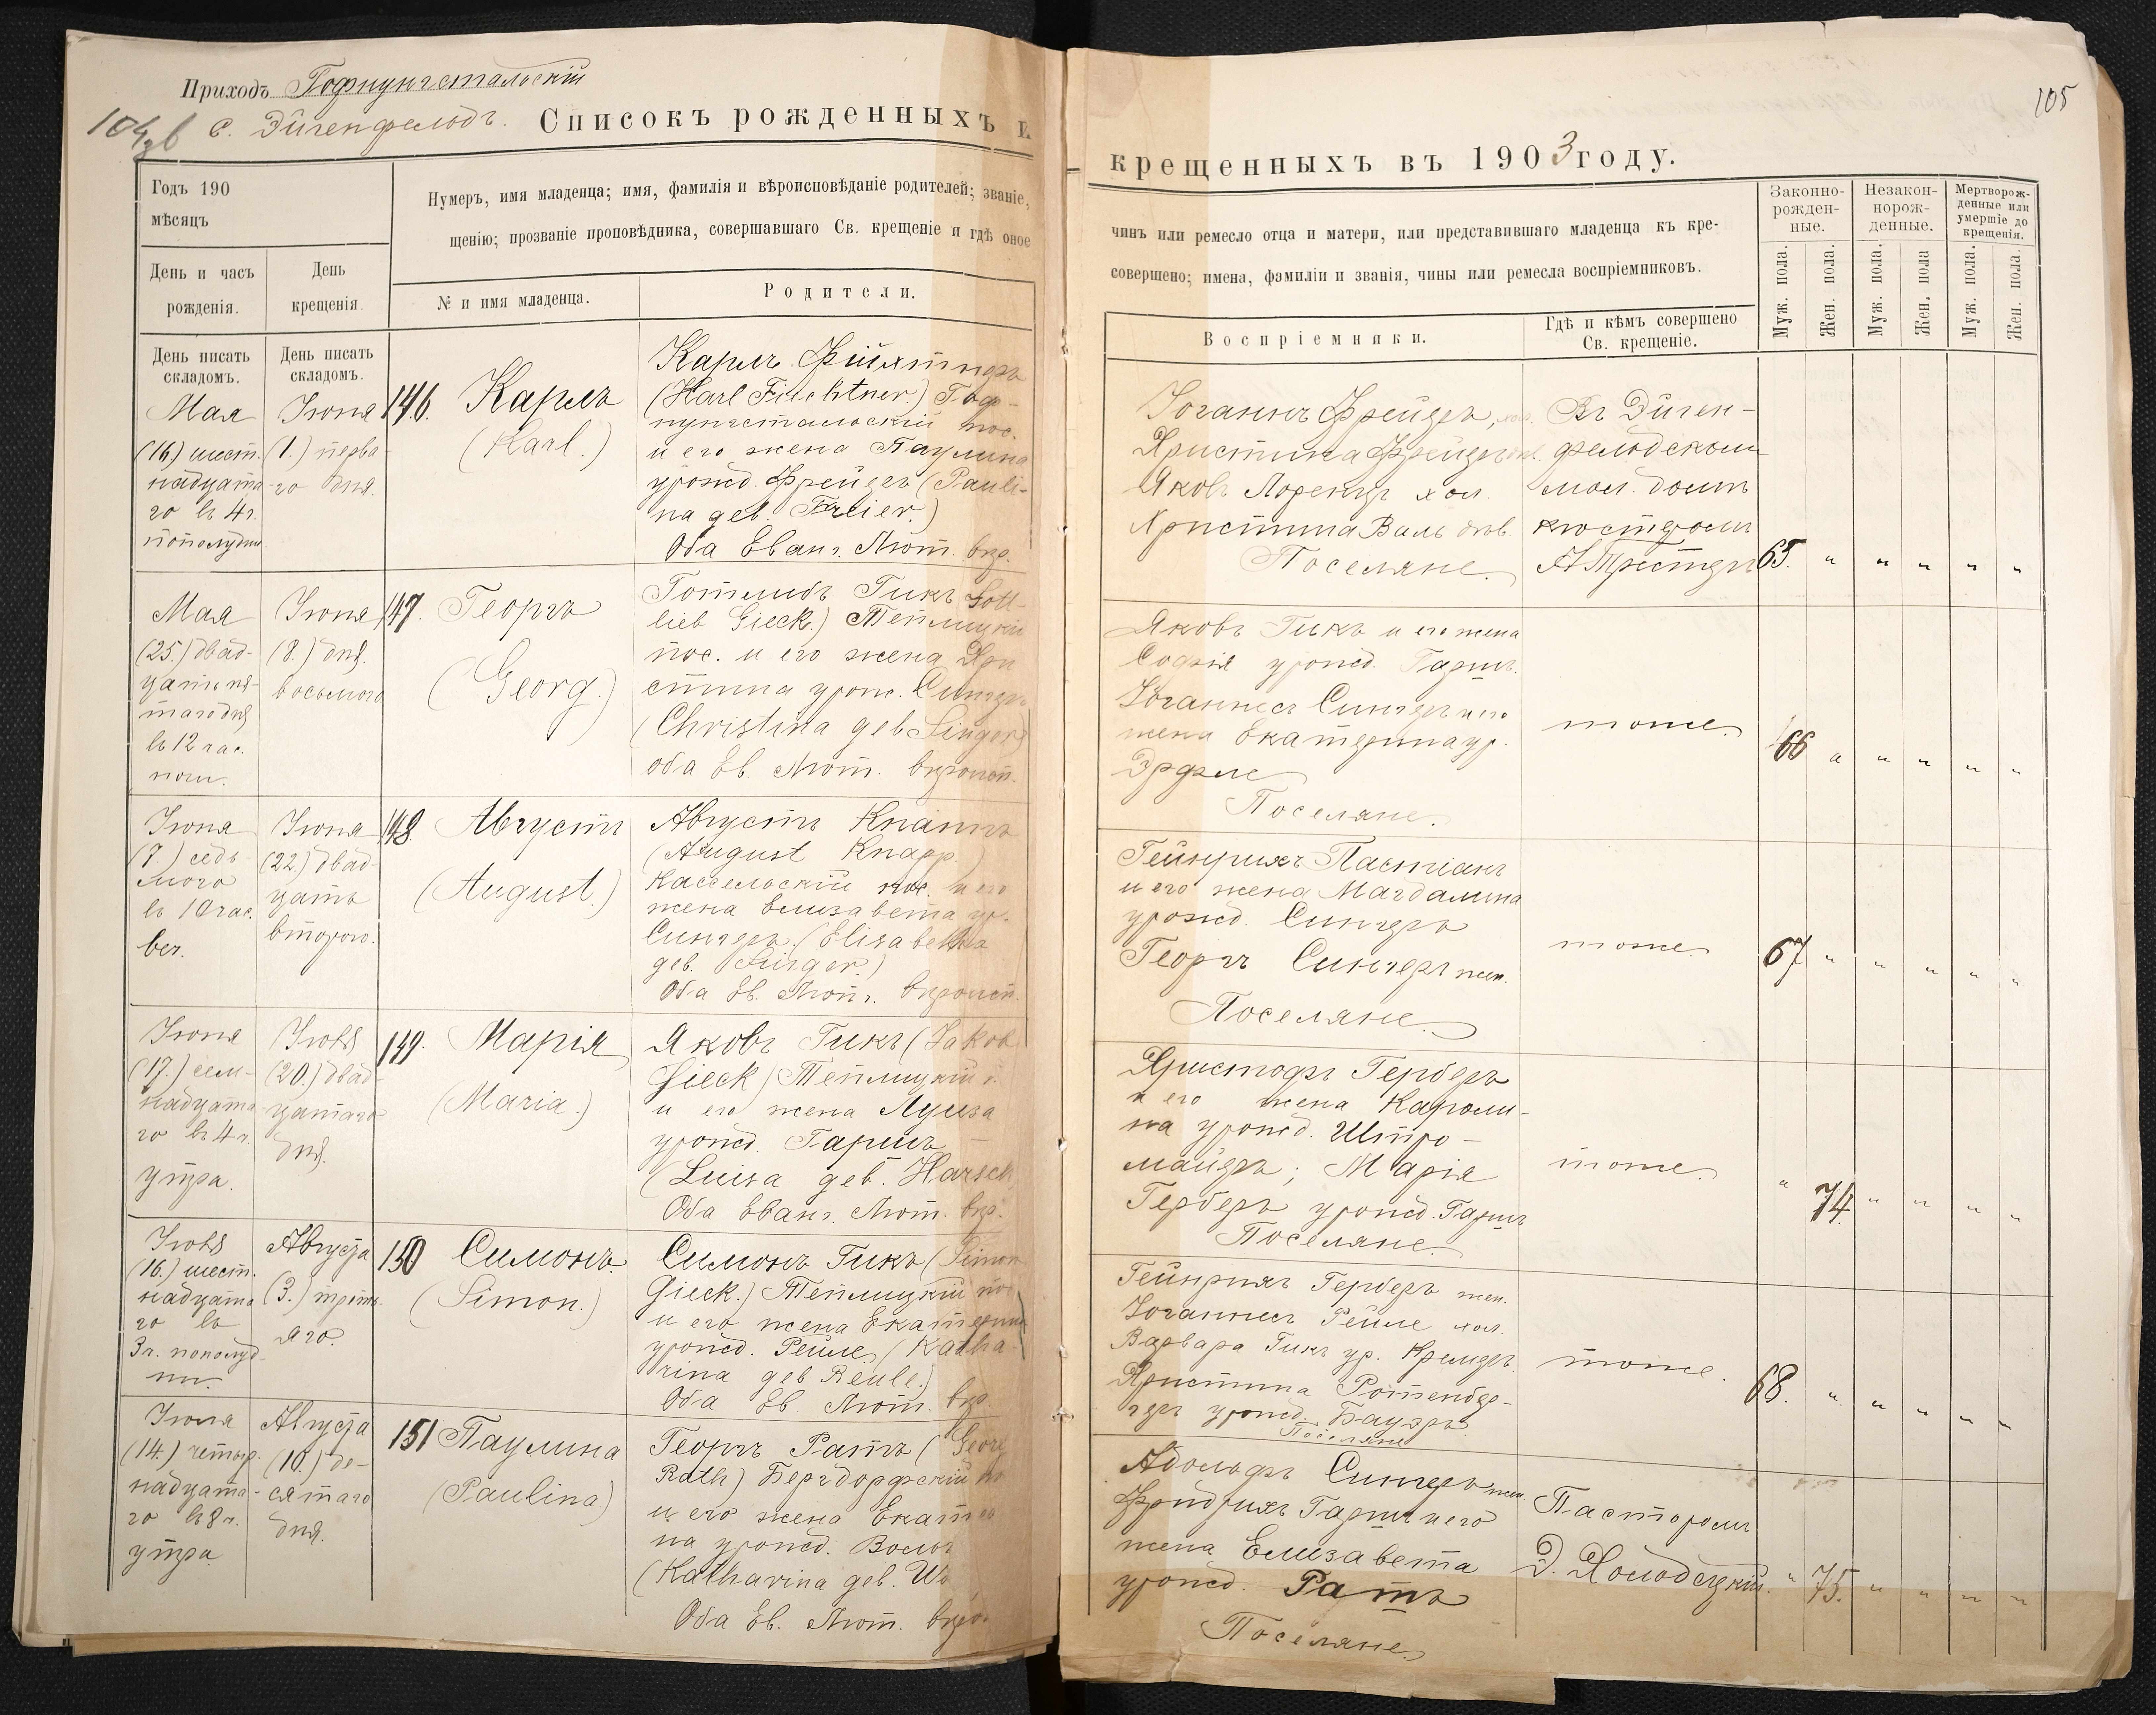 Приходъ Гофнунгстальскій
104 об
с. Эйгенфельдъ.
Списокъ рожденныхъ и
Годъ 190
мѣсяцъ
Нумеръ, имя младенца; имя, фамилія и вѣроисповѣданіе родителей; званіе,
щенію; прозваніе проповѣдника, совершавшаго Св. крещеніе и гдѣ оное
День и часъ
рожденія.
День
крещенія.
№ и имя младенца.
Родители.
День писать
складомъ.
День писать
складомъ.
Мая
(16.) шест-
надцата-
го въ 4 ч.
пополудни
Іюня
(1.) перва-
го дня.
146.
Карлъ
(Karl.)
Карлъ Фійхтнеръ
(Karl Fiechtner) Гоф-
нунгстальскій пос.
и его жена Паулина
урожд. Фрейеръ (Pauli-
na geb. Freier.)
Оба Еванг. Лют. вѣр.
Мая
(25.) двад-
цать пя-
таго дня
въ 12 час.
ночи.
Іюня
(8.) дня.
восьмого
147.
Георгъ
(Georg.)
Готлибъ Гикъ (Gott-
lieb Gieck.) Теплицкій
пос. и его жена Хри
стина урож. Сингеръ
(Christina geb Singer)
оба Ев. Лют. вѣроисп.
Іюня
(7.) седь-
мого
въ 10 час.
веч.
Іюня
(22.) двад-
цать
второго.
148.
Августъ
(August.)
Августъ Кнаппъ
(August Knapp.)
Кассельскій пос. и его
жена Елизавета ур.
Сингеръ. (Elisabetha
geb. Singer.)
Оба Ев. Лют. вѣроисп.
Іюня
(17.) сем-
надцата
го въ 4 ч.
утра.
Іюля
(20.) двад-
цатаго
дня.
149.
Марія
(Maria.)
Яковъ Гикъ (Jakob
Gieck) Теплицкій п.
и его жена Луиза
урожд. Гаршъ
(Luisa geb. Harsch
Оба Еванг. Лют. вѣр.
Іюля
(16.) шест-
надцата
го въ
3 ч. пополуд-
ни.
Августа
(3.) треть-
яго.
150
Симонъ.
(Simon.)
Симонъ Гикъ (Simon
Gieck.) Теплицкій пос
и его жена Екатерина
урожд. Рейле (Katha-
rina geb Reule.)
Оба Ев. Лют. вѣр.
Іюля
(14.) четыр-
надцата-
го въ 8 ч.
утра.
Августа
(10.) де-
сятаго
дня.
151
Паулина
(Paulina)
Георгъ Ратъ (Georg
Rath) Бергдорфскій по
и его жена Екатер
на урожд. Вольф
(Katharina geb. Wo
Оба Ев. Лют. вѣр.
105
крещенныхъ въ 1903 году.
чинъ или ремесло отца и матери, или представившаго младенца къ кре-
совершено; имена, фамиліи и званія, чины или ремесла воспріемниковъ.
Воспріемники.
Гдѣ и кѣмъ совершено
Св. крещеніе.
Законно-
рожден-
ные.
Незакон-
норож-
денные.
Мертворож-
денные или
умершіе до
крещенія.
Муж. пола.
Жен. пола.
Муж. пола.
Жен. пола
Муж. пола.
Жен. пола.
Іоганнъ Фрейеръ, хол.
Христина Фрейеръ
Яковъ Лоренцъ хол.
Христина Валь дѣв.
Поселяне.
Въ Эйген-
фельдскомъ
мол. домѣ
кюстеромъ
65. " " " " "
Яковъ Гикъ и его жена
Софія урожд. Гаршъ.
Іоганнесъ Сингеръ и его
жена Екатерина ур.
Эрфле
Поселяне.
тоже.
66 " " " " "
Гейнрихъ Пастіанъ
и его жена Магдалина
урожд. Сингеръ
Георгъ Сингеръ жен.
Поселяне.
тоже.
67 " " " " "
Христофъ Герберъ
и его жена Кароли-
на урожд. Штро-
майеръ; Марія
Герберъ урожд. Гаршъ
Поселяне.
тоже.
" 74. " " " "
Гейнрихъ Герберъ жен.
Іоганнесъ Рейле хол.
Варвара Гикъ ур. Кремеръ.
Христина Ротенбер-
геръ урожд. Бауэръ.
Поселяне
тоже.
68. " " " " "
Адольфъ Сингеръ жен.
Фридрихъ Гаршъ и его
жена Елизавета
урожд. Ратъ
Поселяне.
Пасторомъ
Э. Холодецкій.
" 75. " " " "